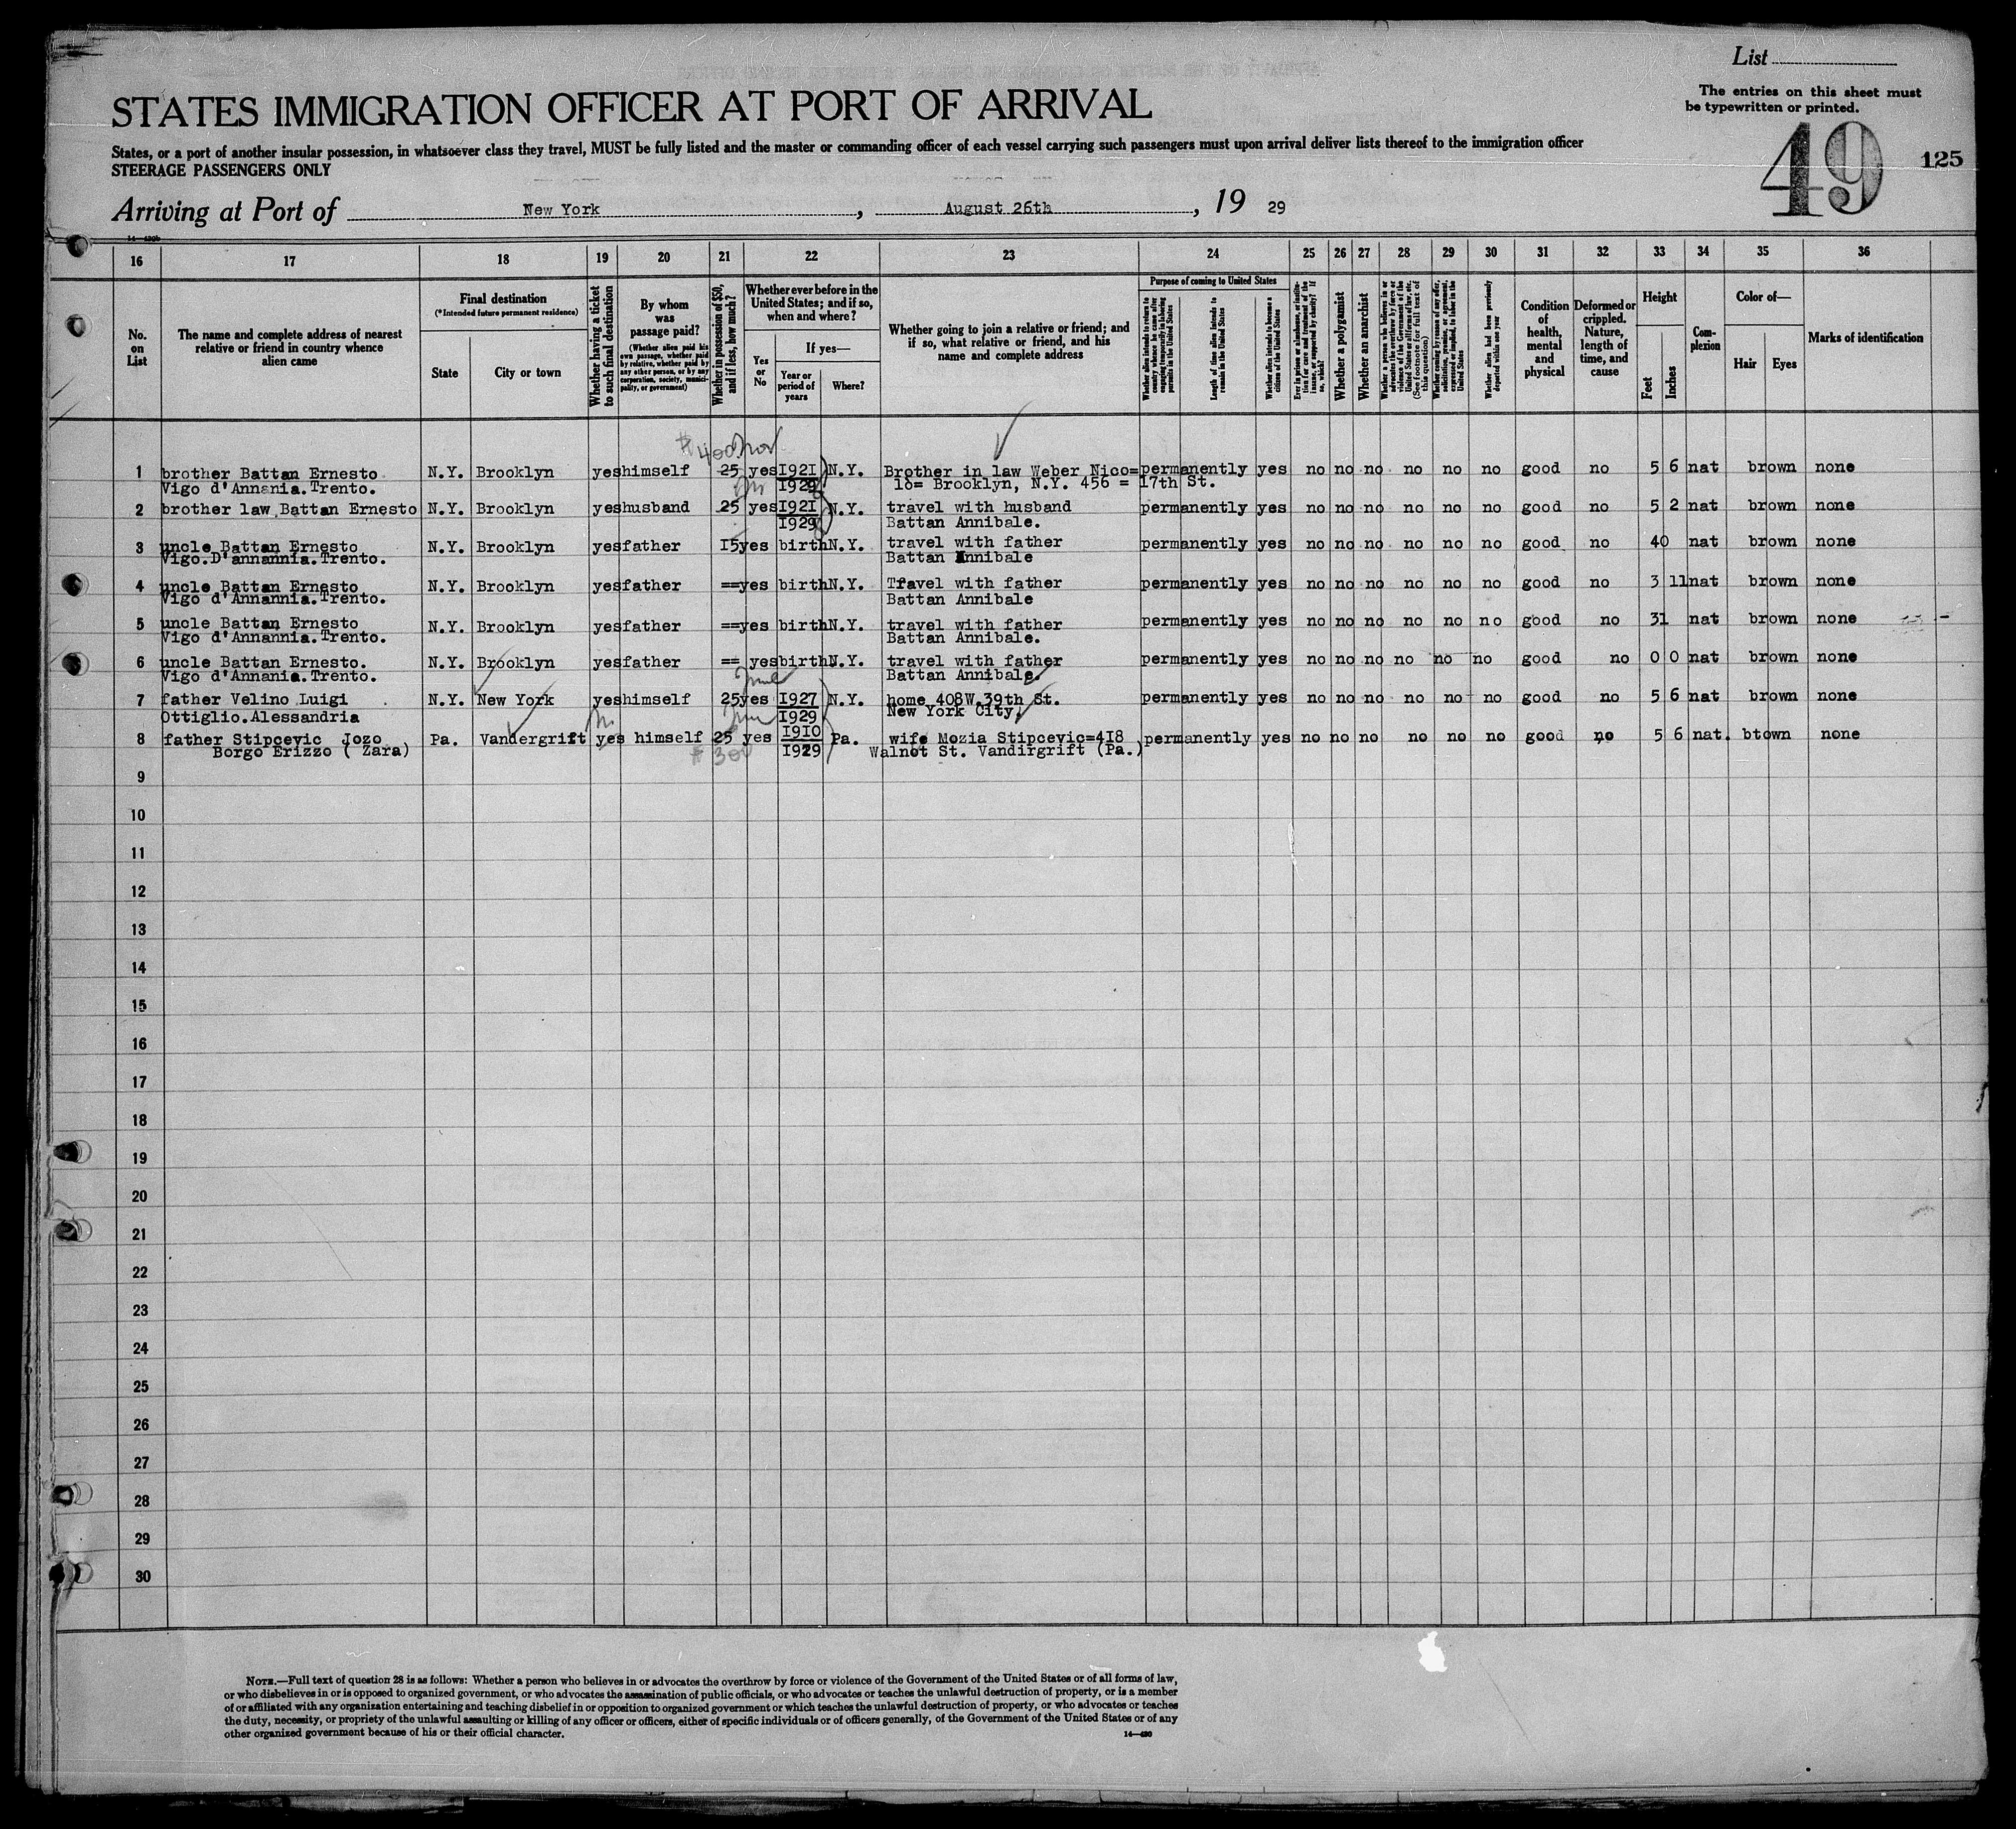 List
The entries on this sheet must
be typewritten or printed.
STATES IMMIGRATION OFFICER AT PORT OF ARRIVAL
49
125
States, or a port of another insular possession, in whatsoever class they travel, MUST be fully listed and the master or commanding officer of each vessel carrying such passengers must upon arrival deliver lists thereof to the immigration officer
STEERAGE PASSENGERS ONLY
Arriving at Port of New York, August 26th, 19 29
16 17 18 19 20 21 22 23 24 25 26 27 28 29 30 31 32 33 34 35 36
No. on List
The name and complete address of nearest relative or friend in country whence alien came
Final destination
(*Intended future permanent residence)
State
City or town
Whether having a ticket to such final destination
By whom was passage paid?
(Whether alien paid his own passage, whether paid by relative, whether paid by any other person, or by any corporation, society, municipality, or government)
Whether in possession of $50, and if less, how much?
Whether ever before in the United States; and if so, when and where?
Yes or No
If yes—
Year or period of years
Where?
Whether going to join a relative or friend; and if so, what relative or friend, and his name and complete address
Purpose of coming to United States
Whether alien intends to return to country whence he came after engaging temporarily in laboring pursuits in the United States
Length of time alien intends to remain in the United States
Whether alien intends to become a citizen of the United States
Ever in prison or almshouse, or institution for care and treatment of the insane, or supported by charity? If so, which?
Whether a polygamist
Whether an anarchist
Whether a person who believes in or advocates the overthrow by force or violence of the Government of the United States or all forms of law, etc. (See footnote for full text of this question)
Whether coming by reason of any offer, solicitation, promise, or agreement, expressed or implied, to labor in the United States
Whether alien had been previously deported within one year
Condition of health, mental and physical
Deformed or crippled. Nature, length of time, and cause
Height
Feet
Inches
Complexion
Color of—
Hair
Eyes
Marks of identification
$400
1 brother Battan Ernesto N.Y. Brooklyn yes himself 25 yes 1921 N.Y. Brother in law Weber Nico= permanently yes no no no no no no good no 5 6 nat brown none
Vigo d'Annania.Trento. 1929 lo= Brooklyn, N.Y. 456 = 17th St.
2 brother law Battan Ernesto N.Y. Brooklyn yes husband 25 yes 1921 N.Y. travel with husband permanently yes no no no no no no good no 5 2 nat brown none
1929 Battan Annibale.
3 uncle Battan Ernesto N.Y. Brooklyn yes father 15 yes birth N.Y. travel with father permanently yes no no no no no no good no 4 0 nat brown none
Vigo.D'annannia.Trento. Battan Annibale
4 uncle Battan Ernesto N.Y. Brooklyn yes father == yes birth N.Y. Travel with father permanently yes no no no no no no good no 3 11 nat brown none
Vigo d'Annannia.Trento. Battan Annibale
5 uncle Battan Ernesto N.Y. Brooklyn yes father == yes birth N.Y. travel with father permanently yes no no no no no no good no 3 1 nat brown none
Vigo d'Annannia.Trento. Battan Annibale.
6 uncle Battan Ernesto. N.Y. Brooklyn yes father == yes birth N.Y. travel with father permanently yes no no no no no no good no 0 0 nat brown none
Vigo d'Annania.Trento. Battan Annibale
7 father Velino Luigi N.Y. New York yes himself 25 yes 1927 N.Y. home 408W.39th St. permanently yes no no no no no no good no 5 6 nat brown none
Ottiglio.Alessandria 1929 New York City.
8 father Stipcevic Jozo Pa. Vandergrift yes himself 25 yes 1910 Pa. wife Mozia Stipcevic=418 permanently yes no no no no no no good no 5 6 nat. btown none
Borgo Erizzo ( Zara) $300 1929 Walnot St. Vandirgrift (Pa.)
9
10
11
12
13
14
15
16
17
18
19
20
21
22
23
24
25
26
27
28
29
30
NOTE.—Full text of question 28 is as follows: Whether a person who believes in or advocates the overthrow by force or violence of the Government of the United States or of all forms of law,
or who disbelieves in or is opposed to organized government, or who advocates the assassination of public officials, or who advocates or teaches the unlawful destruction of property, or is a member
of or affiliated with any organization entertaining and teaching disbelief in or opposition to organized government or which teaches the unlawful destruction of property, or who advocates or teaches
the duty, necessity, or propriety of the unlawful assaulting or killing of any officer or officers, either of specific individuals or of officers generally, of the Government of the United States or of any
other organized government because of his or their official character.
14—430